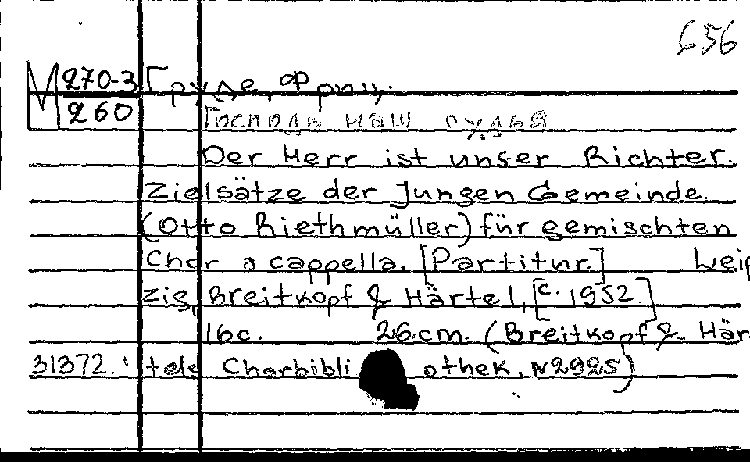 656
М 270-3 Груде, Фриц.
260 Господь наш судья
Der Herr ist unser Richter.
Zielsätze der Jungen Gemeinde.
(Otto Riethmüller) für gemischten
Chor a cappella. [Partitur.] Leip
zig, Breitkopf & Härtel, [c. 1952]
16c. 26.cm. (Breitkopf & Här
31372. tels Chorbibli othek, N2925)